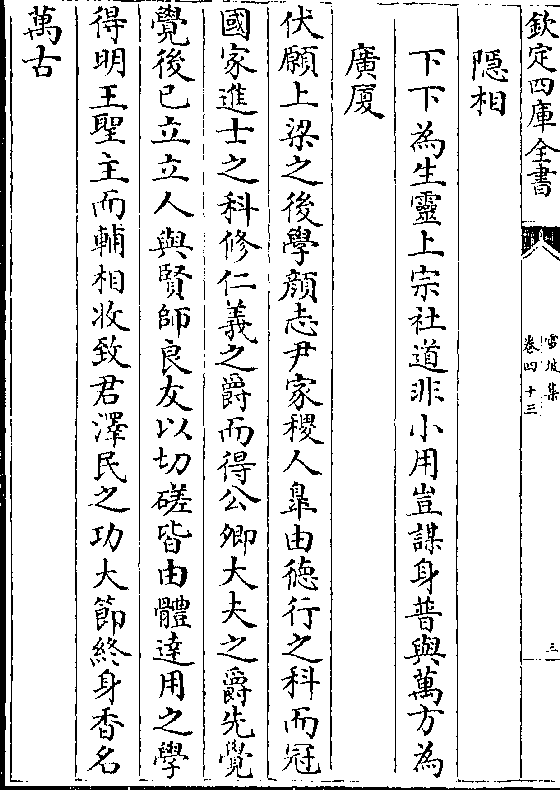 欽定四庫全書
雪坡集
卷四十三
三
隱相
下下為生靈上宗社道非小用豈謀身普與萬方為
廣廈
伏願上梁之後學顔志尹家稷人臯由徳行之科而冠
國家進士之科修仁義之爵而得公卿大夫之爵先覺
覺後已立立人與賢師良友以切磋皆由體達用之學
得明王聖主而輔相收致君澤民之功大節終身香名
萬古